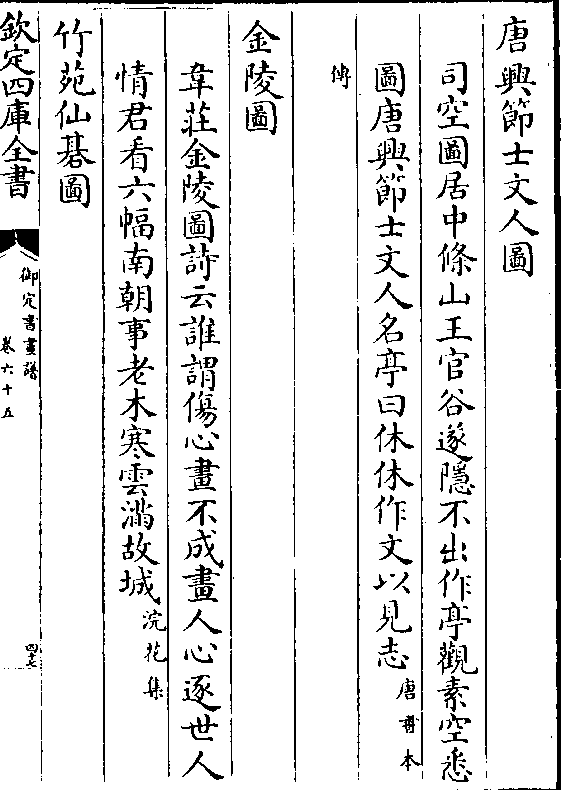 唐興節士文人圖
司空圖居中條山王官谷遂隱不出作亭觀素室悉
圖唐興節士文人名亭曰休休作文以見志唐書本
傳
金陵圖
韋莊金陵圖詩云誰謂傷心畫不成畫人心逐世人
情君看六幅南朝事老木寒雲滿故城浣花集
竹苑仙碁圖
欽定四庫全書
御定書畫譜
卷六十五